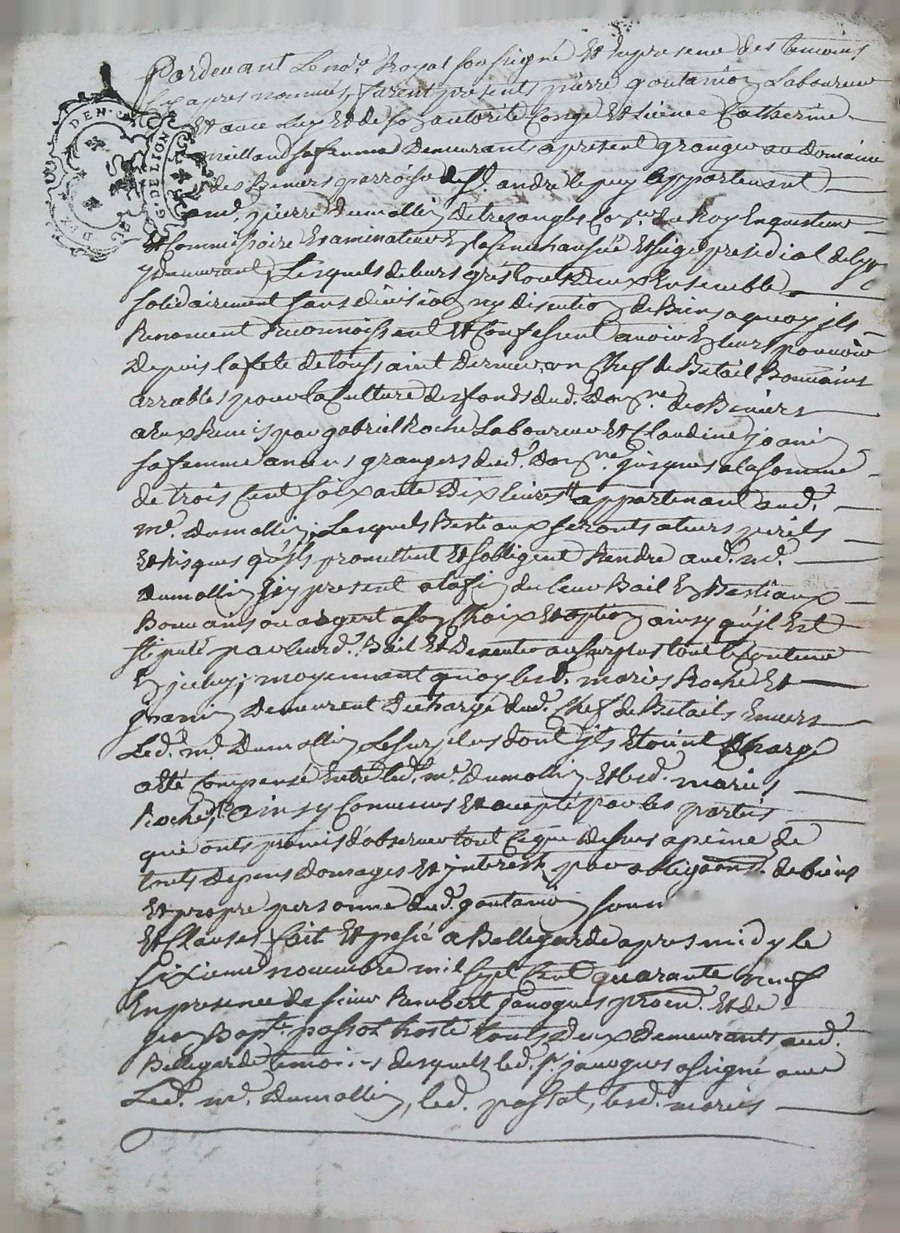 DEN.
GEN. DE LION
Pardevant Le no.re Royal soussigné Et en presence des temoins
Cy apres nommés, furent present pierre goutanion Laboureur
Et avec luy Et de son autorité Congé Et licence Catherine
meilland sa femme Demeurants a present granger au domaine
des Beniers parroisse de St. andré le puy appartenant
a me. pierre Dumollin de tresangles Con.er du Roy Enquesteur
Et Commissaire Examinateur En la senechaussée Et siege presidial de lyon
y demeurant, Lesquels de leurs grés touts deux Ensemble
solidairement sans division ny discution de Biens a quoy ils
Renoncent Reconnoissent Et Confessent avoir En leur pouvoir
Depuis la fete de toussaint Dernier, un Chef de Betail Boumains
arrables pour la Culture des fonds dud. Dom.ne des Beniers
a Eux Remis par gabriel Roche Laboureur Et Claudine joanin
sa femme anciens grangers dud. Dom.ne jusques a la somme
de trois Cent soixante Dix livres appartenant aud.
me. Dumollin; Lesquels Bestiaux seront a leurs perils
Et risques qu'ils promettent Et s'obligent Rendre aud. me.
Dumollin Icy present a la fin du leur Bail En Bestiaux
Bouvans ou argent a son Choix Et option ainsy qu'il Est
stipulé par leurd. Bail Et D'executer au surplus tout le Contenu
En jceluy; moyennant quoy lesd. mariés Roche Et
joanin Demeurent Decharge dud. Chef de Betails Envers
Led. me. Dumollin Le surplus dont ils Etoient Chargé
a été Compensé Entre led. me. Dumollin Et lesd. mariés
Roche, ainsy Convenus Et accepté par les parties
qui onts promis d'observer tout Ce que Dessus a peine de
touts depens domages Et interests, par obligaons. de biens
Et propre personne dud. goutanion soum
Et Clauses fait Et passé a Bellegarde apres midy le
sixieme novembre mil sept Cent quarante neuf
En presence de sieur Rembert janoques procu. Et de
jean Bapt.e passot hoste touts deux Demeurants aud.
Bellegarde temoins desquels led. sr. janoques a signé avec
Led. me. Dumollin, led. passot, lesd. mariés